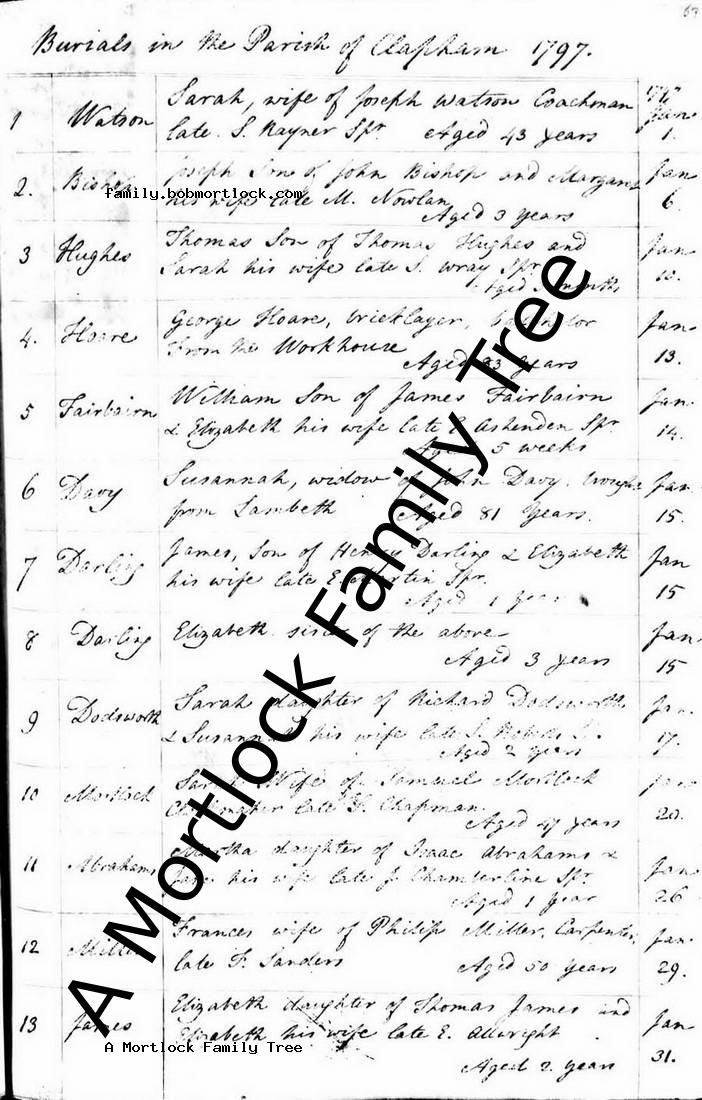 Burials in the Parish of Clapham 1797.
1797
1 Watson Sarah, wife of Joseph Watson Coachman Jan
late S. Rayner Spr Aged 43 years 1.
2. Bishop Joseph Son of John Bishop and Margaret Jan
his wife late M. Nowlan 6.
Aged 3 years
family.bobmortlock.com
3 Hughes Thomas Son of Thomas Hughes and Jan
Sarah his wife late S. Wray Spr
Aged months
4. Hoare George Hoare, bricklayer, Jan
From the Workhouse 13.
Aged years
5 Fairbairn William Son of James Fairbairn Jan
& Elizabeth his wife late E. Ashenden Spr 14.
Aged 5 weeks
6 Davy Susannah, widow of John Davy. brought Jan
from Lambeth Aged 81 Years. 15.
7 Darling James, Son of Henry Darling & Elizabeth Jan
his wife late E. Spr 15
Aged 1 year
8 Darling Elizabeth sister of the above Jan
Aged 3 years 15
9 Dodsworth Sarah daughter of Richard Dodsworth Jan
& Susannah his wife late S. 17.
Aged 2 years
10 Mortlock Sarah Wife of Samuel Mortlock Jan
late Chapman 20.
Aged 47 years
11 Abrahams Martha daughter of Isaac Abrahams & Jan
Jane his wife late J. Chamberline Spr 26
Aged 1 Year
12 Miller Frances wife of Philip Miller, Carpenter, Jan
late F. Sanders Aged 50 years 29.
13 James Elizabeth daughter of Thomas James and Jan
Elizabeth his wife late E. Allwright 31.
Aged 2 years
A Mortlock Family Tree
A Mortlock Family Tree